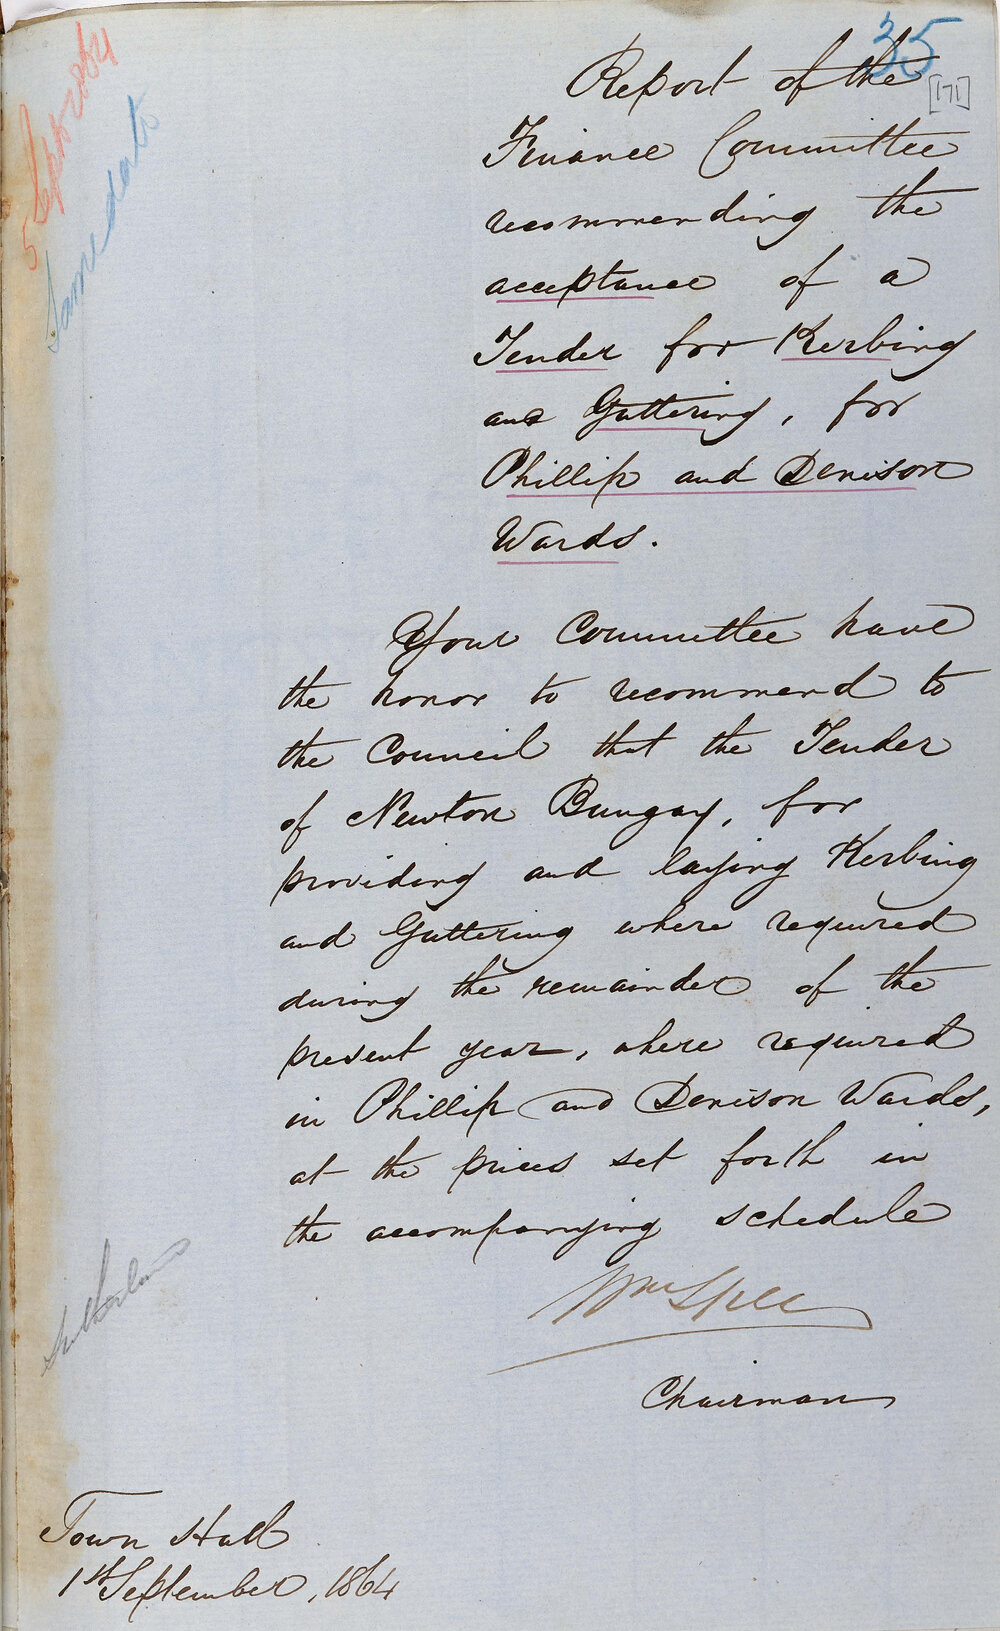 35
[171]
5 Sept 1864
Same date
Report of the
Finance Committee
recommending the
acceptance of a
Tender for Kerbing
and Guttering, for
Phillip and Denison
Wards.
Your Committee have
the honor to recommend to
the Council that the Tender
of Newton Bungay, for
providing and laying Kerbing
and Guttering where required
during the remainder of the
present year, where required
in Phillip and Denison Wards,
at the prices set forth in
the accompanying schedule
Wm Speer
Chairman
Sutherland
Town Hall
1st September, 1864